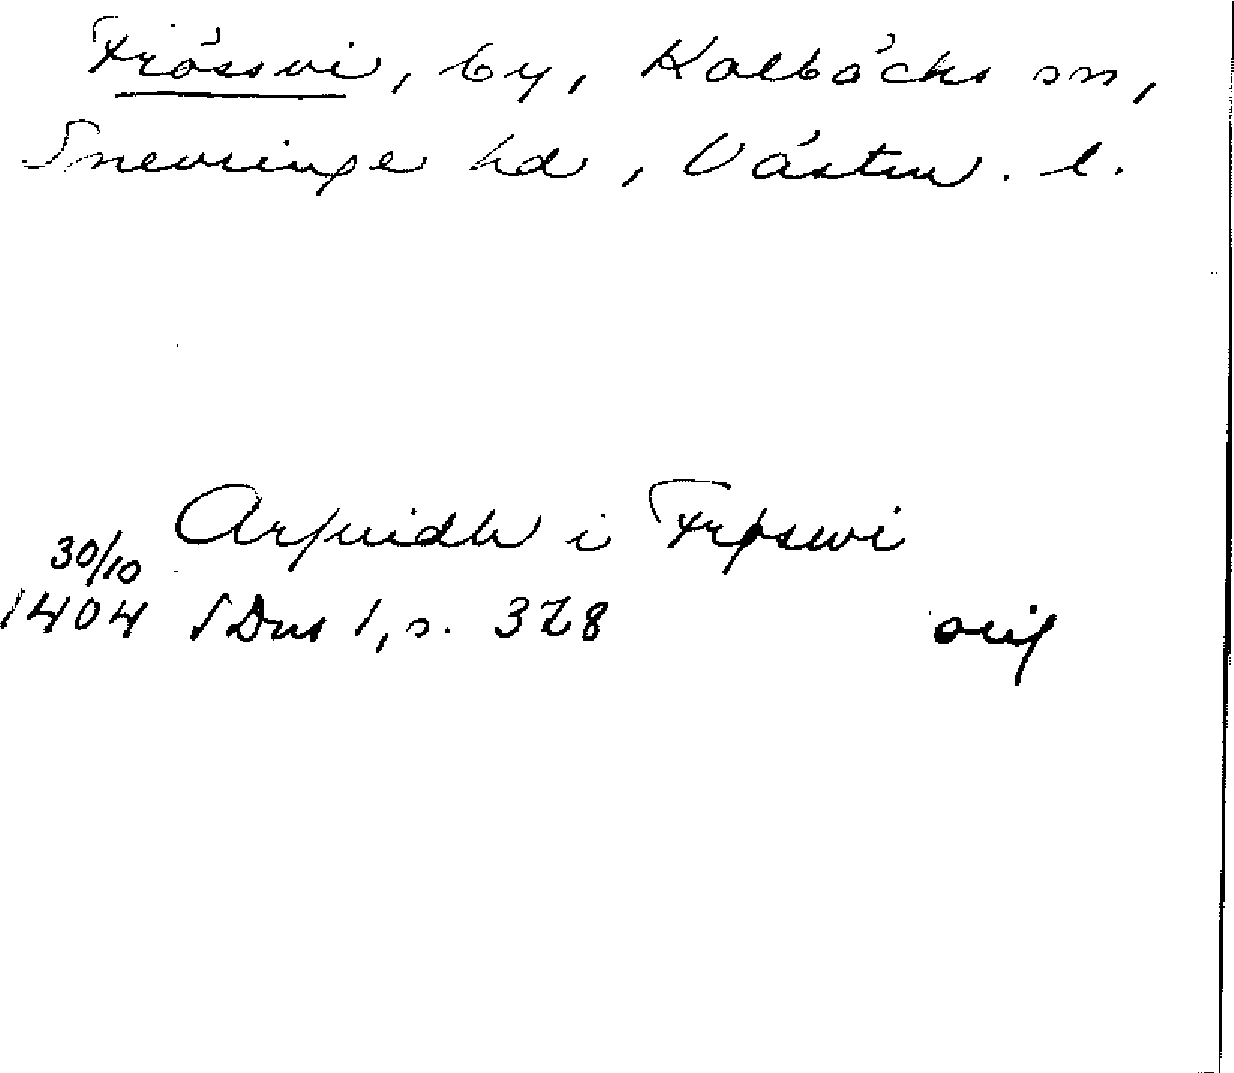 Frössvi, by, Kolbäcks sn,
Snevringe hd, Västm. l.
Arfuidh i Frøswi
30/10
1404 SDns 1, s. 328
orig